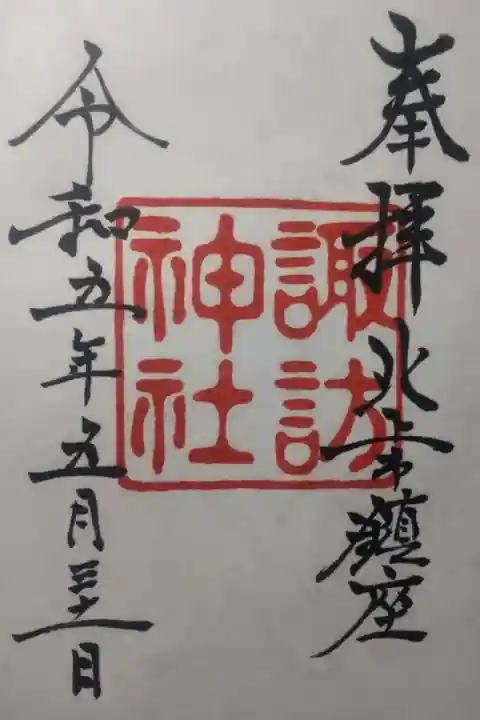 奉拝 北上市鎮座
諏訪
神社
令和五年五月三十一日